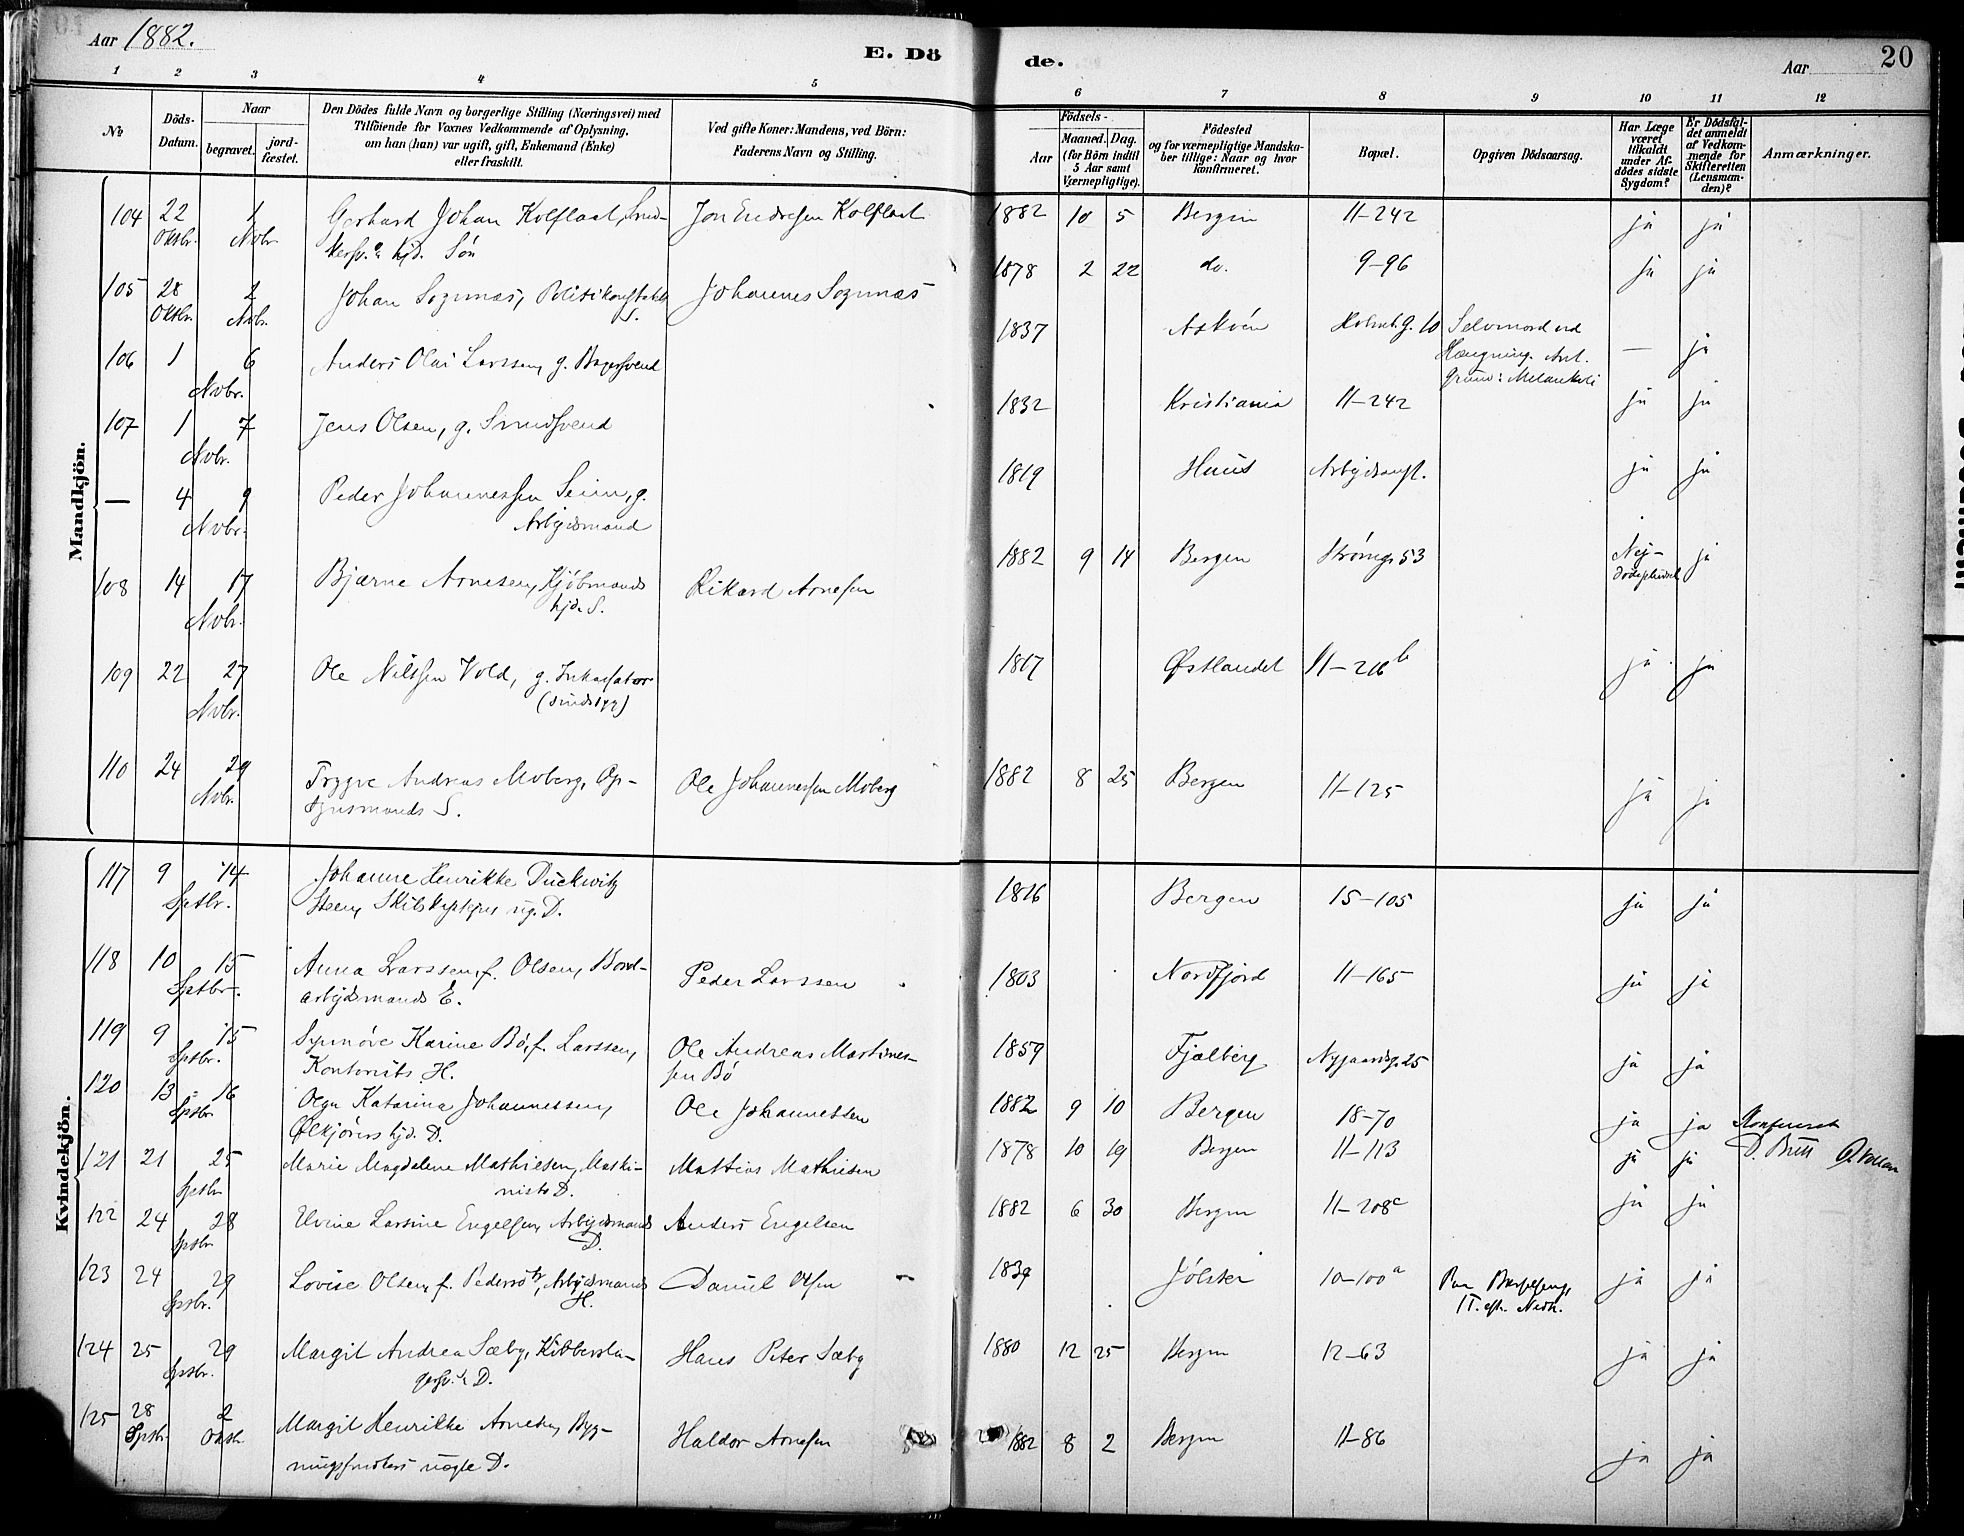 Aar 1882.
E. Döde.
Aar
20
1 2 3 4 5 6 7 8 9 10 11 12
№
Döds-Datum.
Naar
begravet.
jord-fæstet.
Den Dödes fulde Navn og borgerlige Stilling (Næringsvei) med
Tilföiende for Voxnes Vedkommende af Oplysning,
om han (hun) var ugift, gift, Enkemand (Enke)
eller fraskilt.
Ved gifte Koner: Mandens, ved Börn:
Faderens Navn og Stilling.
Födsels-
Aar
Maaned. Dag.
(for Börn indtil
5 Aar samt
Værnepligtige).
Födested
og for værnepligtige Mandska-
ber tillige: Naar og hvor
konfirmeret.
Bopæl.
Opgiven Dödsaarsag.
Har Læge
været
tilkaldt
under Af-
dödes sidste
Sygdom?
Er Dödsfal-
det anmeldt
af Vedkom-
mende for
Skifteretten
(Lensman-
den)?
Anmærkninger.
Mandkjön.
104 22 Oktbr. 1 Novbr. Gerhard Johan Kolflaat, Smed- Jon Endresen Kolflaat 1882 10 5 Bergen 11-242 ja ja
Søn
105 28 Oktbr. 2 Nvbr. Johan Sognnæs, Politikonstabels S. Johannes Sognnæs 1878 2 22 do. 9-96 ja ja
106 1 6 Nvbr. Anders Olai Larssen, g. Bagersvend 1837 Askøen 10 Selvmord ved
Hængning. Ant.
Grund: Melankoli — ja
107 1 7 Nvbr. Jens Olsen, g. Smedsvend 1832 Kristiania 11-242 ja ja
— 4 9 Nvbr. Peder Johannessen Seim, g.
Arbejdsmand 1819 Huus Arbejdsanst. ja ja
108 14 17 Nvbr. Bjarne Arnesen, Kjøbmands
hjd. S. Rikard Arnesen 1882 9 14 Bergen Strømg. 53 Nej- ja
109 22 27 Nvbr. Ole Nilssen Vold, g. Inkassator
(sindssyg) 1817 Østlandet 11-216 b ja ja
110 24 29 Nvbr. Trygve Andreas Moberg, Op-
synsmands S. Ole Johannessen Moberg 1882 8 25 Bergen 11-125 ja ja
Kvindekjön.
117 9 14 Septbr. Johanne Henrikke Duckwitz
Steen, ug. D. 1816 Bergen 15-105 ja ja
118 10 15 Septbr. Anna Larssen, f. Olsen, Bord-
arbejdsmands E. Peder Larssen 1803 Nordfjord 11-165 ja ja
119 9 15 Septbr. Synnøve Karine Bø, f. Larssen,
Kontorists H. Ole Andreas Martines-
sen Bø 1859 Fjælberg Nygaardsg. 25 ja ja
120 13 16 Sptbr. Olga Katarina Johannessen,
Ølkjørers hjd. D. Ole Johannessen 1882 9 10 Bergen 18-70 ja ja
121 21 25 Septbr. Marie Magdalene Mathiesen, Maski-
nists D. Mattias Mathiesen 1878 10 19 Bergen 11-113 ja ja
122 24 28 Spstbr. Elvine Larsine Engelsen, Arbejdsmands
D. Anders Engelsen 1882 6 30 Bergen 11-208 c ja ja
123 24 29 Spstbr. Lovise Olsen, f. Pedersd., Arbejdsmands
H. Daniel Olsen 1839 Jølster 10-100 a ja ja
124 25 29 Spstbr. Margit Andrea Sæby, Kobbersla-
gersv. D. Hans Peter Sæby 1880 12 25 Bergen 12-63 ja ja
125 28 Spstbr. 2 Oktbr. Margit Henrikke Arnesen, Byg-
ningssnedkers uægte D. Haldor Arnesen 1882 8 2 Bergen 11-86 ja ja